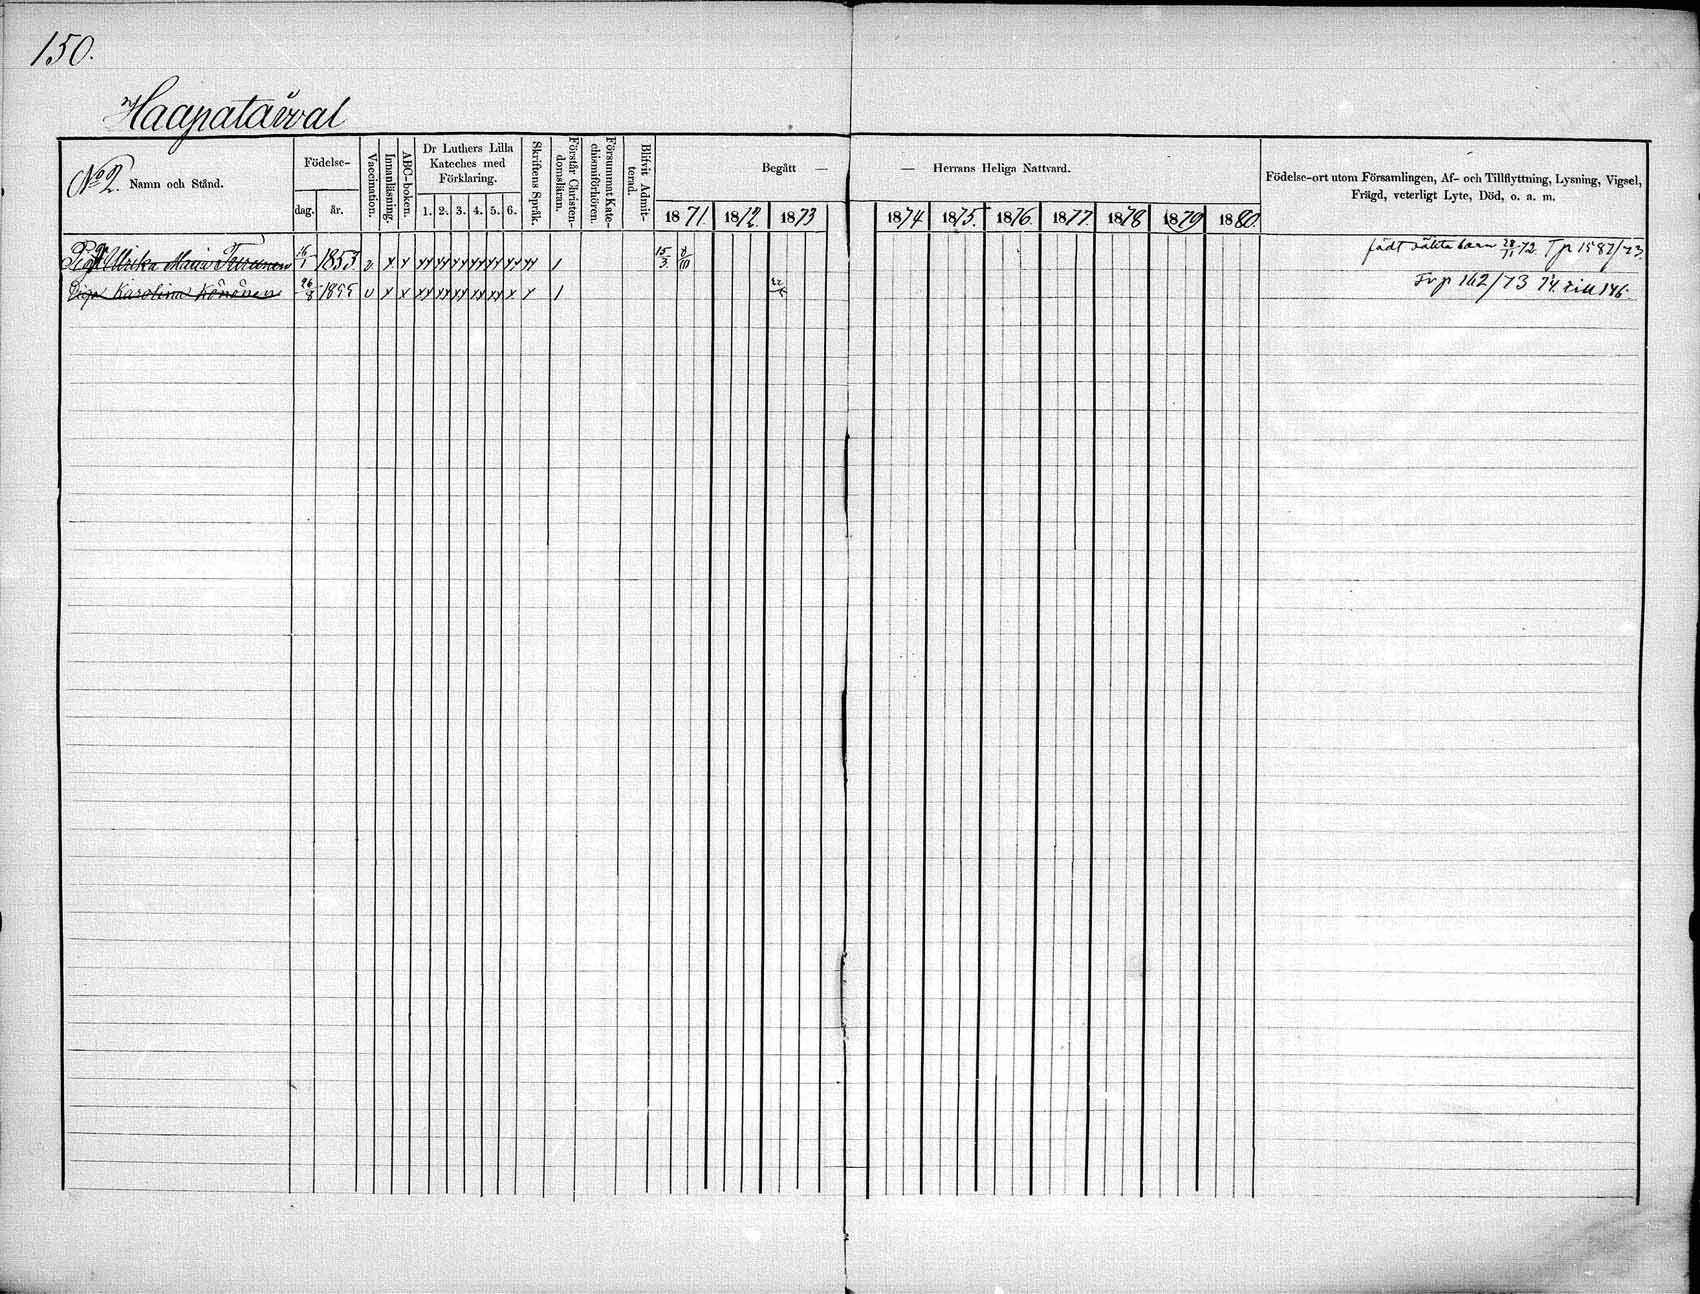 150.
Haapataival
No 2. Namn och Stånd.
Födelse-
dag. år.
Vaccination.
Innanläsning.
ABC-boken.
Dr Luthers Lilla
Kateches med
Förklaring.
1. 2. 3. 4. 5. 6.
Skriftens Språk.
Förstår Christen-
domsläran.
Försummat Kate-
chismiförhören.
Blifvit Admit-
terad.
Begått — — Herrans Heliga Nattvard.
1871. 1872. 1873 1874 1875. 1876. 1877. 1878 1879 1880.
Födelse-ort utom Församlingen, Af- och Tillflyttning, Lysning, Vigsel,
Frägd, veterligt Lyte, Död, o. a. m.
Ulrika Maria 1853 v x x xx xx xx xx xx xx xx 1 15/3 8/10 födt oäkta barn 28/11 72. Tp 1587/73
Piga Karolina Könönen 26/8 1855 v x x xx xx xx xx xx x x 1 Frp 162/73 74. till 146.